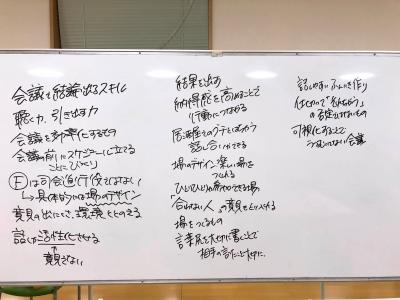 会議で結論出るスキル
聴く力、引き出す力
会議を効率化するもの
会議の前にスケジュール立てる
ことにひとしい
Ⓕは司会進行役ではない
→具体的な場のデザイン
意見の出にくさ、環境をととのえる
話し合いを活性化させる
↑
意見さない
結果を出す
納得感を高めることで
行動につなげる
居酒屋でのグチとはちがう
話し合いができる
場のデザイン 楽しい場を
つくれる
ひとりひとりが発言できる場、
「合わない人」の意見もとり入れる
場をつくるもの
言葉尻を大切に書くことで
相手の言たこと大切に。
話しやすいふんいき作り
の否定はしないもの
可視化することで
会議